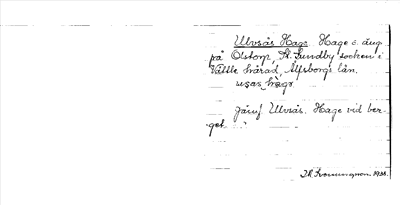 Ulvsås Hage Hage o. äng
på Olstorp, St. Lundby socken i
Vättle härad, Älfsborgs län.
usas hagr
Jämf Ulvsås. Hage vid ber-
get.
1938.